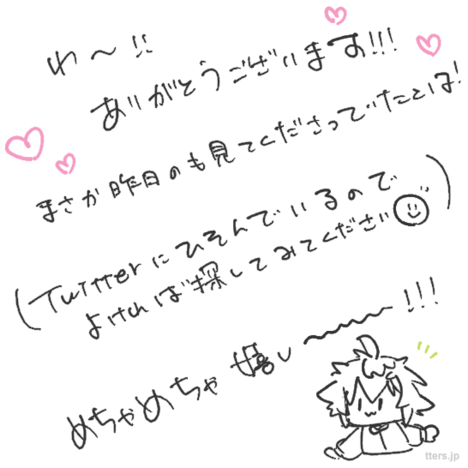 わ〜!!
ありがとうございます!!!
まさか昨日のも見てくださっていたとは!
(Twitterにひそんでいるので
よければ探してみてください)
めちゃめちゃ嬉し〜〜!!!
tters.jp